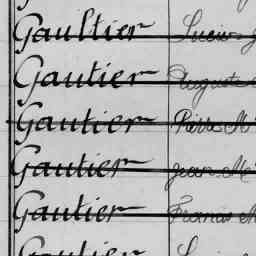 Gaultier Lucien
Gautier Auguste
Gautier Pierre M
Gautier Jean M
Gautier Francis M
Gautier